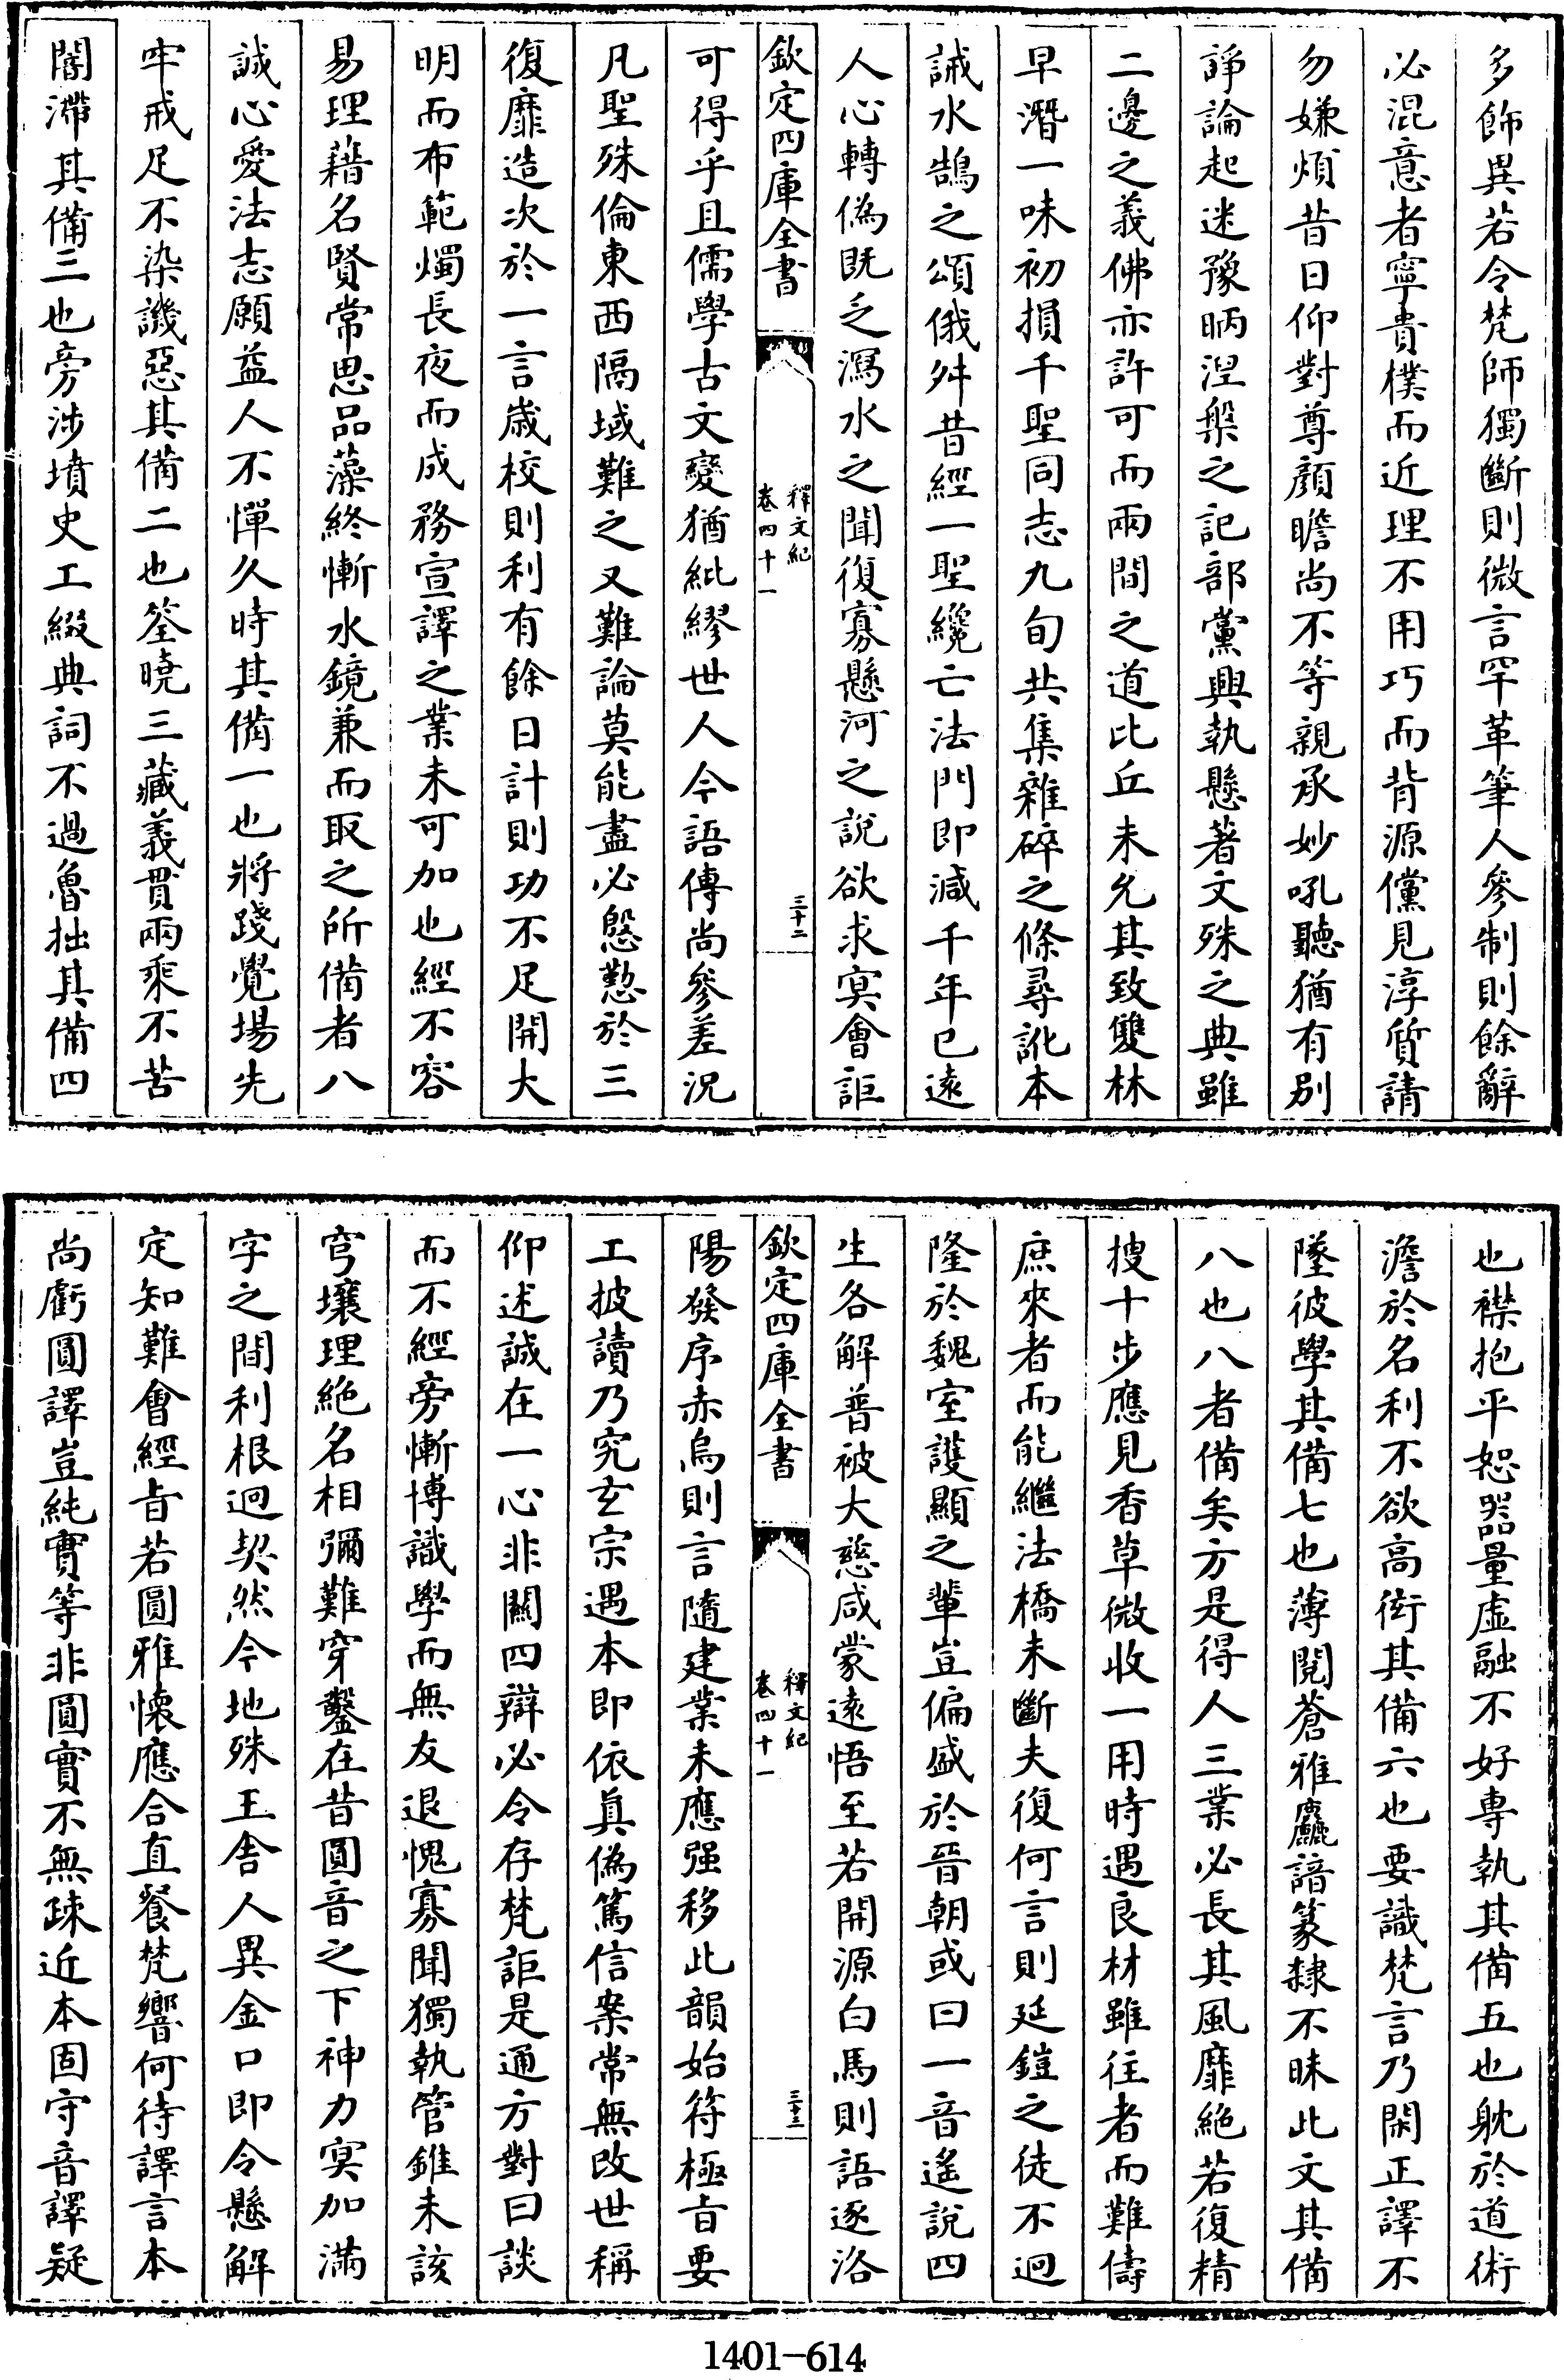 多飾異若令梵師獨斷則微言罕革筆人參制則餘辭
必混意者寧貴樸而近理不用巧而背源儻見淳質請
勿嫌煩昔日仰對尊顏瞻尚不等親承妙吼聽猶有別
諍論起迷豫昞涅槃之記部黨興執懸著文殊之典雖
二邊之義佛亦許可而兩間之道比丘未允其致雙林
早潛一味初損千聖同志九旬共集雜碎之條尋訛本
誡水鵠之頌俄舛昔經一聖纔亡法門即減千年已遠
人心轉偽既乏瀉水之聞復寡懸河之說欲求冥會詎
欽定四庫全書
釋文紀
卷四十一
三十二
可得乎且儒學古文變猶紕繆世人今語傳尚參差況
凡聖殊倫東西隔域難之又難論莫能盡必慇懃於三
復靡造次於一言歲校則利有餘日計則功不足開大
明而布範燭長夜而成務宣譯之業未可加也經不容
易理藉名賢常思品藻終慚水鏡兼而取之所備者八
誠心愛法志願益人不憚久時其備一也將踐覺場先
牢戒足不染譏惡其備二也筌曉三藏義貫兩乘不苦
闇滯其備三也旁涉墳史工綴典詞不過魯拙其備四
也襟抱平恕器量虛融不好專執其備五也躭於道術
澹於名利不欲高衒其備六也要識梵言乃閑正譯不
墜彼學其備七也薄閱蒼雅麤諳篆隸不昧此文其備
八也八者備矣方是得人三業必長其風靡絶若復精
搜十步應見香草微收一用時遇良材雖往者而難儔
庶來者而能繼法橋未斷夫復何言則延鎧之徒不迥
隆於魏室護顯之輩豈偏盛於晉朝或曰一音遙說四
生各解普被大慈咸蒙遠悟至若開源白馬則語逐洛
欽定四庫全書
釋文紀
卷四十一
三十三
陽發序赤烏則言隨建業未應强移此韻始符極旨要
工披讀乃究玄宗遇本即依真偽篤信案常無改世稱
仰述誠在一心非關四辯必令存梵詎是通方對曰談
而不經旁慚博識學而無友退愧寡聞獨執管錐未該
穹壤理絶名相彌難穿鑿在昔圓音之下神力冥加滿
字之間利根迥契然今地殊王舍人異金口即令懸解
定知難會經旨若圓雅懷應合直餐梵響何待譯言本
尚虧圓譯豈純實等非圓實不無疎近本固守音譯疑
1401-614